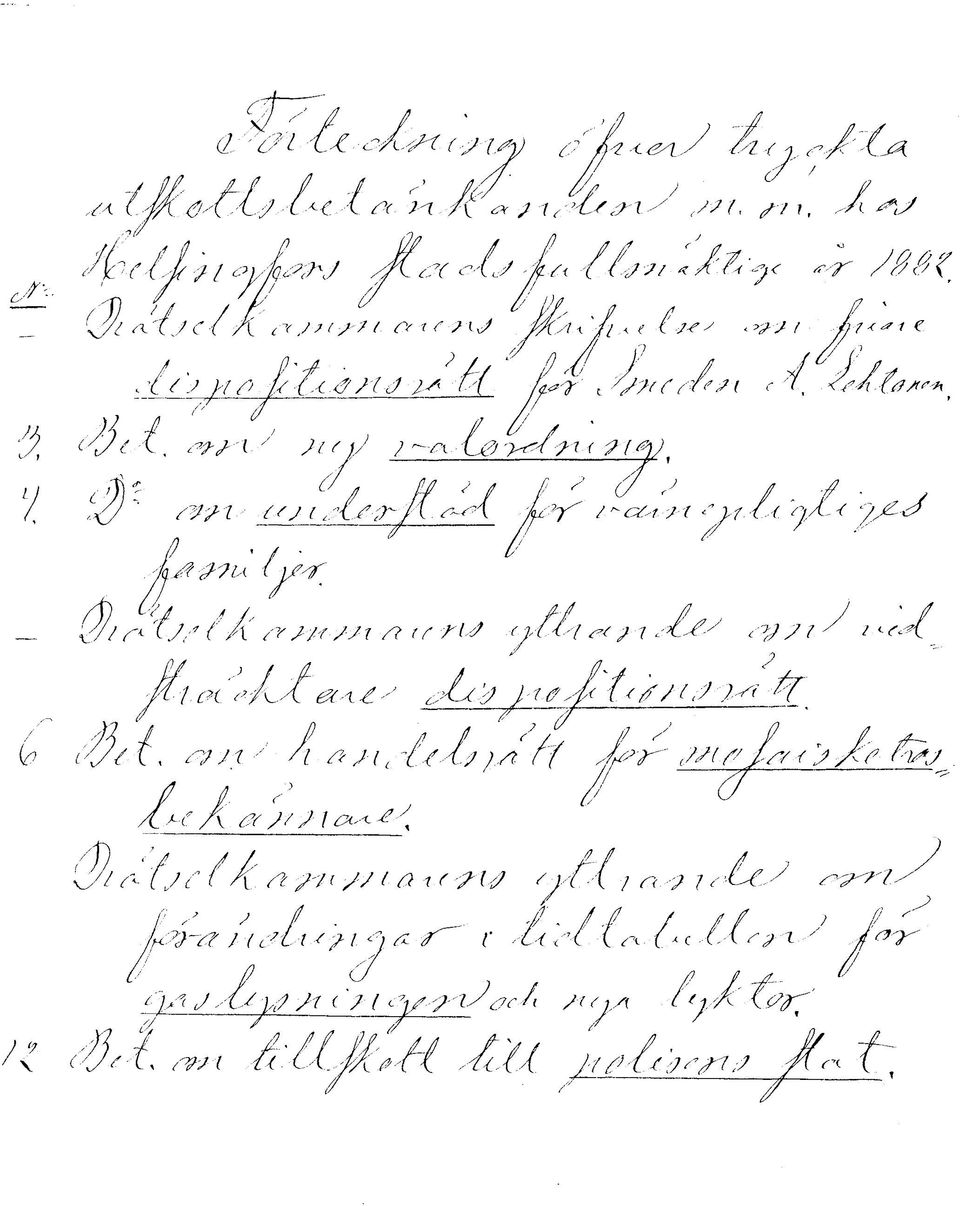 Förteckning öfver tryckta
utskottsbetänkanden m. m. hos
Helsingfors stadsfullmäktige år 1882.
No
– Drätselkammarens skrifvelse om friare
dispositionsrätt för Smeden A. Lehtonen.
3. Bet. om ny valordning.
4. Do om understöd för värnepligtiges
familjer.
– Drätselkammarens yttrande om vid-
sträcktare dispositionsrätt.
6 Bet. om handelsrätt för mosaiske tros-
bekännare.
Drätselkammarens yttrande om
förändringar i tidtabellen för
gaslysningen och nya lyktor.
12 Bet. om tillskott till polisens stat.